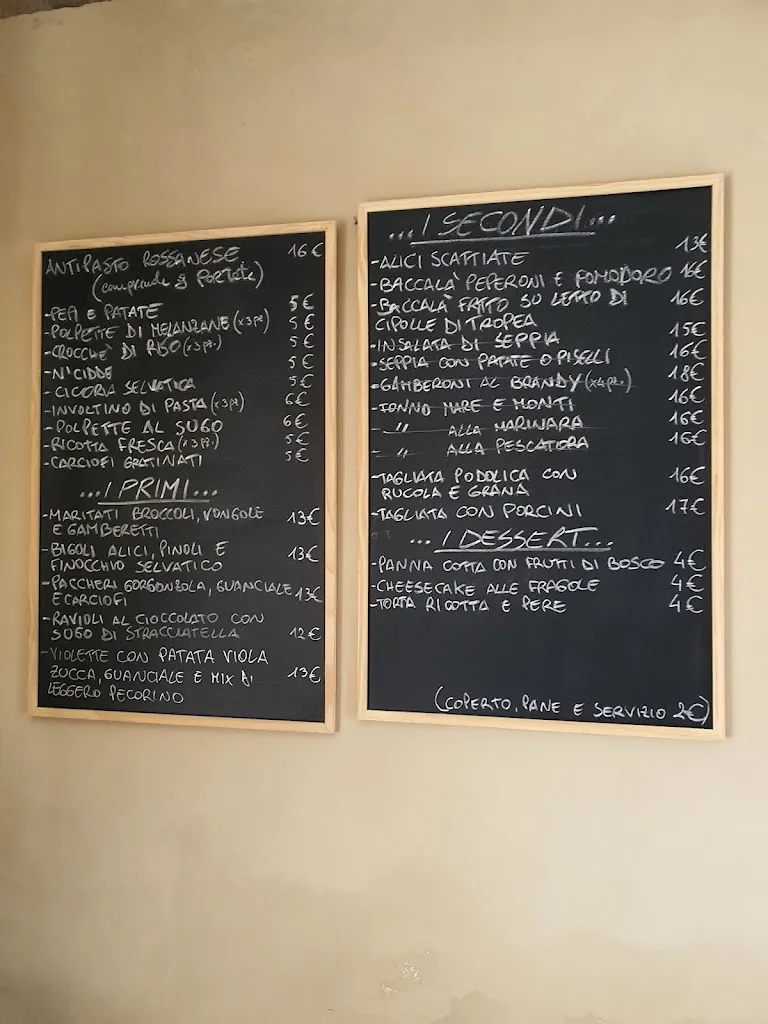 ANTIPASTO ROSSANESE 16€
(comprende 8 portate)
-PEPI E PATATE 5€
-POLPETTE DI MELANZANE (x3pz) 5€
-CROCCHE' DI RISO (x3pz.) 5€
-N'CIDDE 5€
-CICORIA SELVATICA 5€
-INVOLTINO DI PASTA (x3pz) 6€
-POLPETTE AL SUGO 6€
-RICOTTA FRESCA (x3pz.) 5€
-CARCIOFI GRATINATI 5€
...I PRIMI...
-MARITATI BROCCOLI, VONGOLE 13€
E GAMBERETTI
-BIGOLI ALICI, PINOLI E 13€
FINOCCHIO SELVATICO
-PACCHERI GORGONZOLA, GUANCIALE 13€
E CARCIOFI
-RAVIOLI AL CIOCCOLATO CON
SUGO DI STRACCIATELLA 12€
-VIOLETTE CON PATATA VIOLA
ZUCCA, GUANCIALE E MIX DI 13€
LEGGERO PECORINO
...I SECONDI...
-ALICI SCATTIATE 13€
-BACCALA' PEPERONI E POMODORO 16€
-BACCALA' FRITTO SU LETTO DI 16€
CIPOLLE DI TROPEA
-INSALATA DI SEPPIA 15€
-SEPPIA CON PATATE O PISELLI 16€
-GAMBERONI AL BRANDY (x4pz.) 18€
-TONNO MARE E MONTI 16€
- " ALLA MARINARA 16€
- " ALLA PESCATORA 16€
-TAGLIATA PODOLICA CON 16€
RUCOLA E GRANA
-TAGLIATA CON PORCINI 17€
...I DESSERT...
-PANNA COTTA CON FRUTTI DI BOSCO 4€
-CHEESECAKE ALLE FRAGOLE 4€
-TORTA RICOTTA E PERE 4€
(COPERTO, PANE E SERVIZIO 2€)